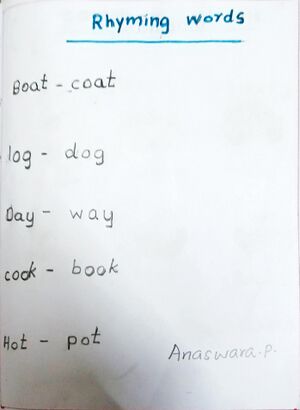 Rhyming words
Boat - coat
log - dog
Day - way
cook - book
Hot - pot
Anaswara.P.